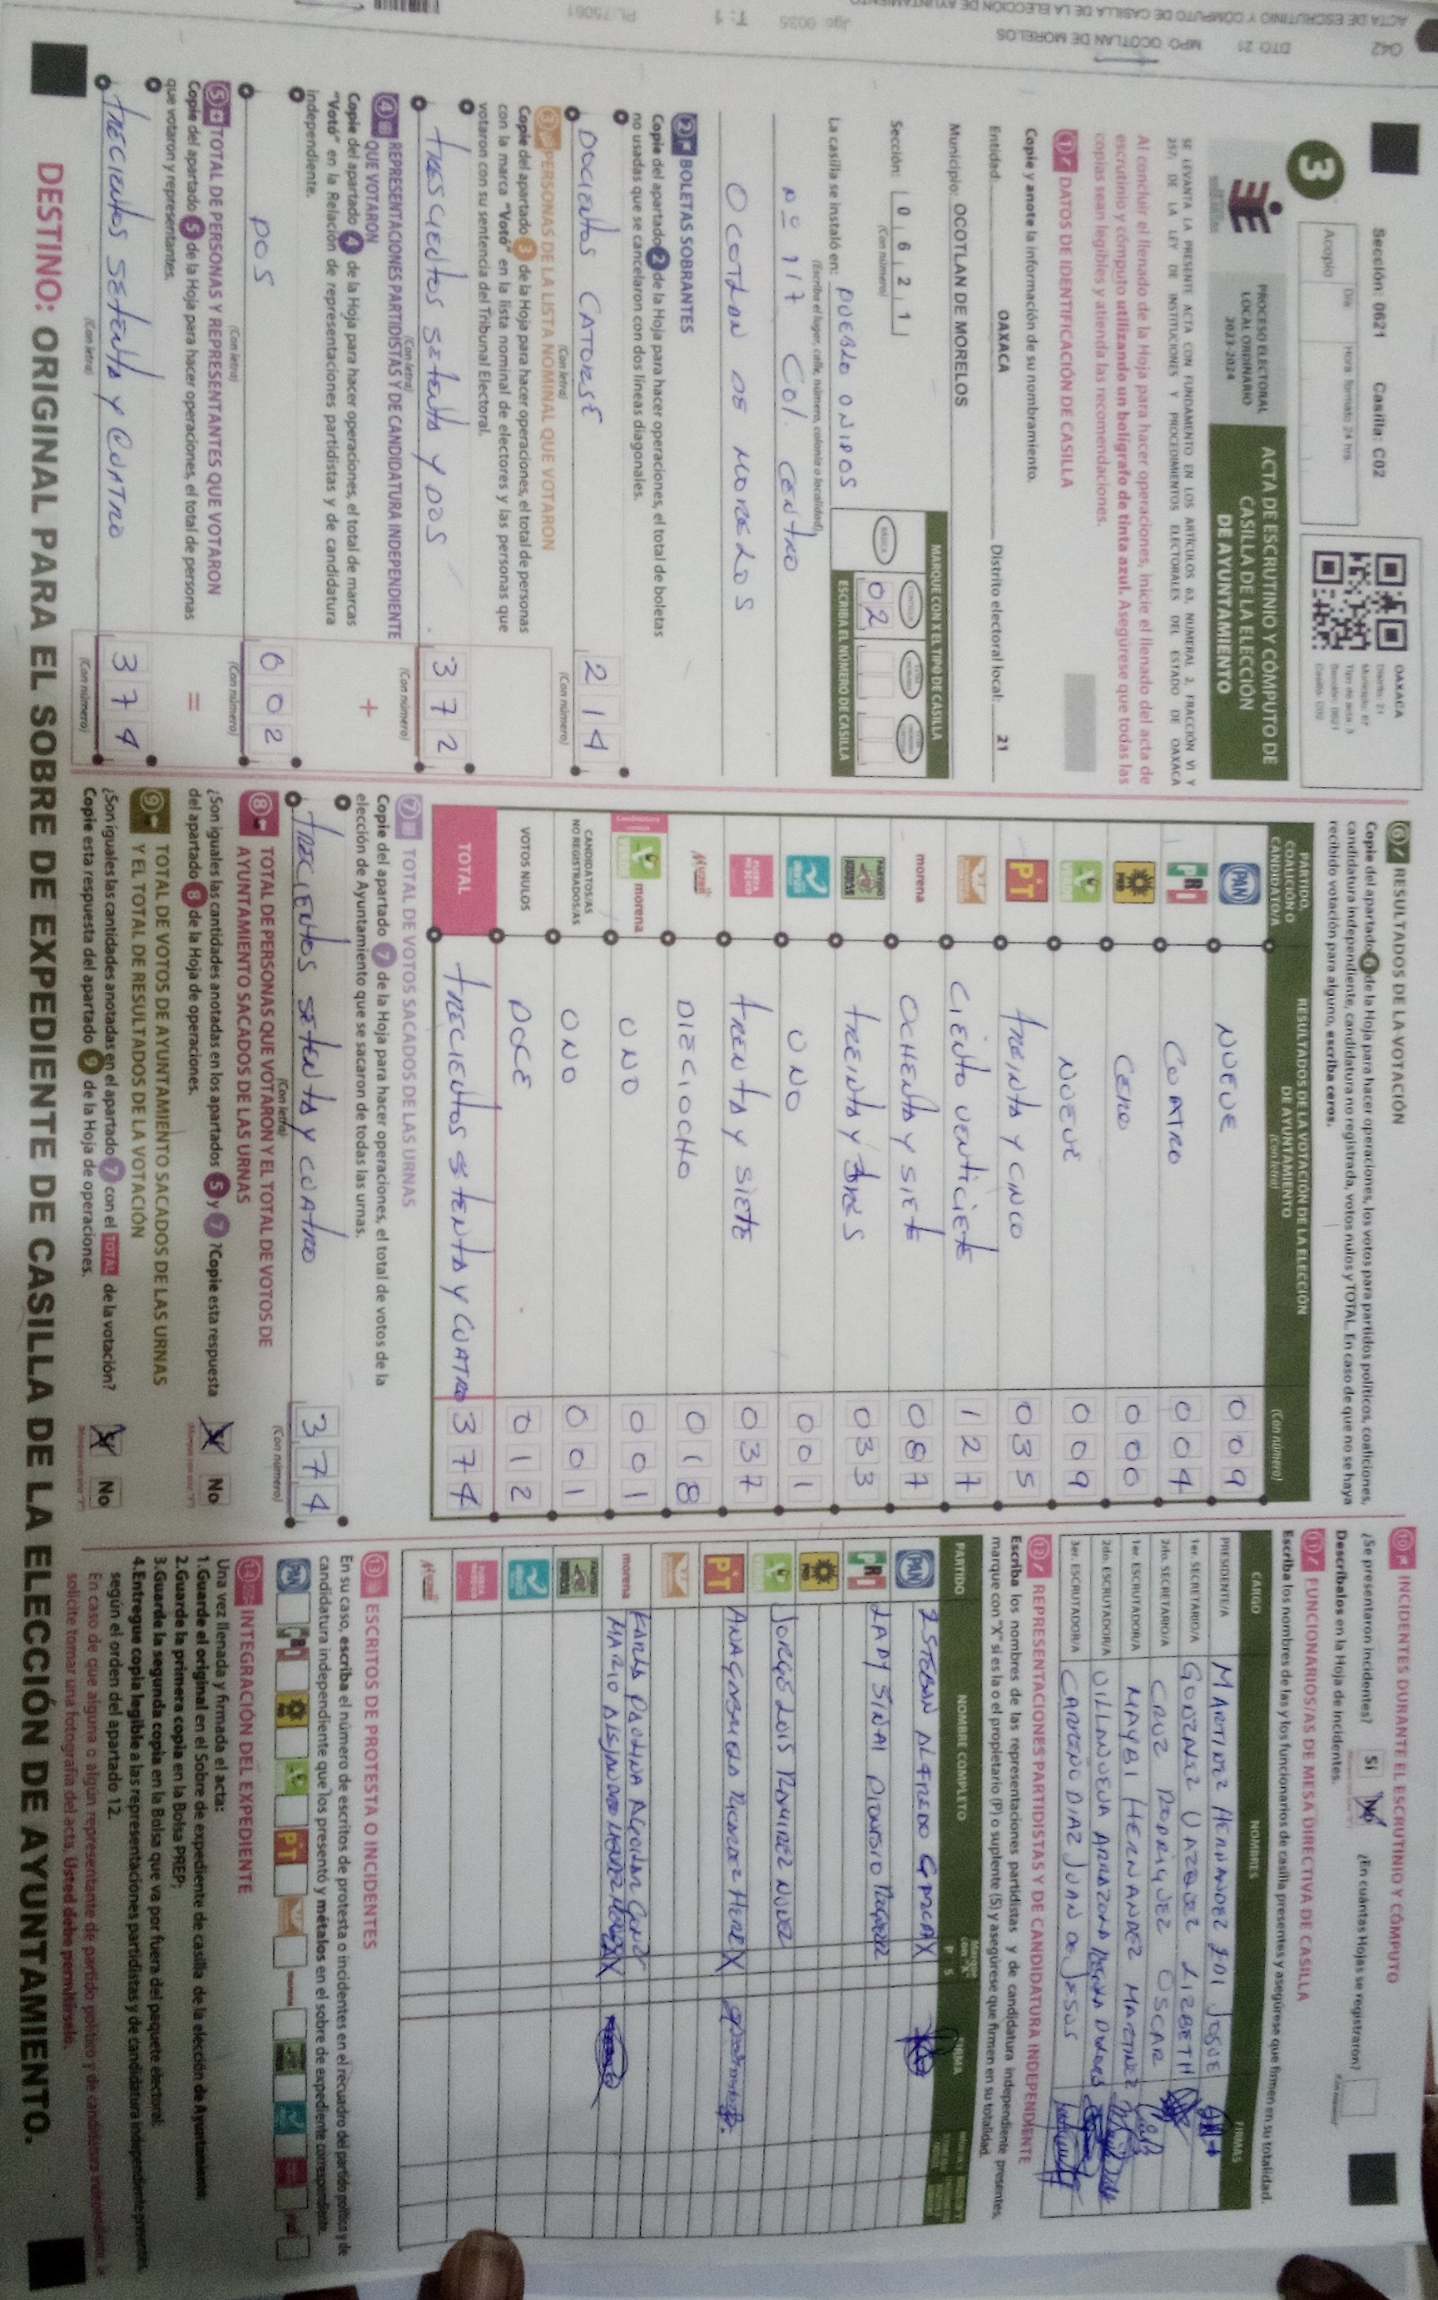 042 DTO 21 MPO. OCOTLAN DE MORELOS
Sección: 0621 Casilla: C02
3
Acopio
Día
Hora formato 24 hrs
PROCESO ELECTORAL
LOCAL ORDINARIO
2023-2024
ACTA DE ESCRUTINIO Y CÓMPUTO DE
CASILLA DE LA ELECCIÓN
DE AYUNTAMIENTO
OAXACA
SE LEVANTA LA PRESENTE ACTA CON FUNDAMENTO EN LOS ARTÍCULOS 63, NUMERAL 2, FRACCIÓN VI Y
257, DE LA LEY DE INSTITUCIONES Y PROCEDIMIENTOS ELECTORALES DEL ESTADO DE OAXACA
Al concluir el llenado de la Hoja para hacer operaciones, inicie el llenado del acta de
escrutinio y cómputo utilizando un bolígrafo de tinta azul. Asegúrese que todas las
copias sean legibles y atienda las recomendaciones.
1 DATOS DE IDENTIFICACIÓN DE CASILLA
Copie y anote la información de su nombramiento.
Entidad: OAXACA Distrito electoral local: 21
Municipio: OCOTLAN DE MORELOS
Sección: 0621
(Con número)
MARQUE CON X EL TIPO DE CASILLA
02
ESCRIBA EL NÚMERO DE CASILLA
La casilla se instaló en: PUEBLO UNIDOS
(Escriba el lugar, calle, número, colonia o localidad)
Nº 117 COL. CENTRO
OCOTLAN DE MORELOS
2 BOLETAS SOBRANTES
Copie del apartado 2 de la Hoja para hacer operaciones, el total de boletas
no usadas que se cancelaron con dos líneas diagonales.
DOCIENTOS CATORSE 214
(Con letra) (Con número)
3 PERSONAS DE LA LISTA NOMINAL QUE VOTARON
Copie del apartado 3 de la Hoja para hacer operaciones, el total de personas
con la marca "Votó" en la lista nominal de electores y las personas que
votaron con su sentencia del Tribunal Electoral.
TRESCIENTOS SETENTA Y DOS 372
(Con letra) (Con número)
4 REPRESENTACIONES PARTIDISTAS Y DE CANDIDATURA INDEPENDIENTE
QUE VOTARON
+
Copie del apartado 4 de la Hoja para hacer operaciones, el total de marcas
"Votó" en la Relación de representaciones partidistas y de candidatura
independiente.
DOS 002
(Con letra) (Con número)
5 TOTAL DE PERSONAS Y REPRESENTANTES QUE VOTARON
=
Copie del apartado 5 de la Hoja para hacer operaciones, el total de personas
que votaron y representantes.
TRECIENTOS SETENTA Y CUATRO 374
(Con letra) (Con número)
6 RESULTADOS DE LA VOTACIÓN
Copie del apartado 6 de la Hoja para hacer operaciones, los votos para partidos políticos, coaliciones,
candidatura independiente, candidatura no registrada, votos nulos y TOTAL. En caso de que no se haya
recibido votación para alguno, escriba ceros.
PARTIDO,
COALICIÓN O
CANDIDATO/A
RESULTADOS DE LA VOTACIÓN DE LA ELECCIÓN
DE AYUNTAMIENTO
(Con letra) (Con número)
PAN NUEVE 009
PRI CUATRO 004
PRD CERO 000
NUEVE 009
PT TREINTA Y CINCO 035
CIENTO VENTICIETE 127
morena OCHENTA Y SIETE 087
TREINTA Y TRES 033
UNO 001
TRENTA Y SIETE 037
DIECIOCHO 018
morena UNO 001
CANDIDATOS/AS
NO REGISTRADOS/AS UNO 001
VOTOS NULOS DOCE 012
TOTAL TRECIENTOS SETENTA Y CUATRO 374
7 TOTAL DE VOTOS SACADOS DE LAS URNAS
Copie del apartado 7 de la Hoja para hacer operaciones, el total de votos de la
elección de Ayuntamiento que se sacaron de todas las urnas.
TRECIENTOS SETENTA Y CUATRO 374
(Con letra) (Con número)
8 TOTAL DE PERSONAS QUE VOTARON Y EL TOTAL DE VOTOS DE
AYUNTAMIENTO SACADOS DE LAS URNAS
¿Son iguales las cantidades anotadas en los apartados 5 y 7 ? Copie esta respuesta
del apartado 8 de la Hoja de operaciones.
No
9 TOTAL DE VOTOS DE AYUNTAMIENTO SACADOS DE LAS URNAS
Y EL TOTAL DE RESULTADOS DE LA VOTACIÓN
¿Son iguales las cantidades anotadas en el apartado 7 con el TOTAL de la votación?
Copie esta respuesta del apartado 9 de la Hoja de operaciones.
No
10 INCIDENTES DURANTE EL ESCRUTINIO Y CÓMPUTO
¿Se presentaron incidentes? Sí No ¿En cuántas Hojas se registraron?
Descríbalos en la Hoja de incidentes.
11 FUNCIONARIOS/AS DE MESA DIRECTIVA DE CASILLA
Escriba los nombres de las y los funcionarios de casilla presentes y asegúrese que firmen en su totalidad.
CARGO NOMBRES FIRMAS
PRESIDENTE/A MARTINEZ HERNANDEZ JOSUE
1er. SECRETARIO/A GONZALEZ VAZQUEZ LIZBETH
2do. SECRETARIO/A CRUZ RODRIGUEZ OSCAR
1er. ESCRUTADOR/A MAYBI HERNANDEZ MARTINEZ
2do. ESCRUTADOR/A VILLANUEVA ARRAZOLA DOLORES
3er. ESCRUTADOR/A CARREÑO DIAZ JUAN DE JESUS
12 REPRESENTACIONES PARTIDISTAS Y DE CANDIDATURA INDEPENDIENTE
Escriba los nombres de las representaciones partidistas y de candidatura independiente presentes,
marque con "X" si es la o el propietario (P) o suplente (S) y asegúrese que firmen en su totalidad.
PARTIDO NOMBRE COMPLETO Marque con "X" P S FIRMA
PAN ESTEBAN ALFREDO GARCIA X
PRI LADY SINAI DIONISIO
PRD
JORGE LUIS RAMIREZ NUÑEZ
PT ANA GABRIELA RICARDEZ HERR X
KARLA PAULINA
morena MARIO ALEJANDRO X
13 ESCRITOS DE PROTESTA O INCIDENTES
En su caso, escriba el número de escritos de protesta o incidentes en el recuadro del partido político y de
candidatura independiente que los presentó y métalos en el sobre de expediente correspondiente.
14 INTEGRACIÓN DEL EXPEDIENTE
Una vez llenada y firmada el acta:
1.Guarde el original en el Sobre de expediente de casilla de la elección de Ayuntamiento;
2.Guarde la primera copia en la Bolsa PREP;
3.Guarde la segunda copia en la Bolsa que va por fuera del paquete electoral;
4.Entregue copia legible a las representaciones partidistas y de candidatura independiente presentes,
según el orden del apartado 12.
En caso de que alguna o algún representante de partido político y de candidatura independiente
solicite tomar una fotografía del acta. Usted debe permitírselo.
DESTINO: ORIGINAL PARA EL SOBRE DE EXPEDIENTE DE CASILLA DE LA ELECCIÓN DE AYUNTAMIENTO.